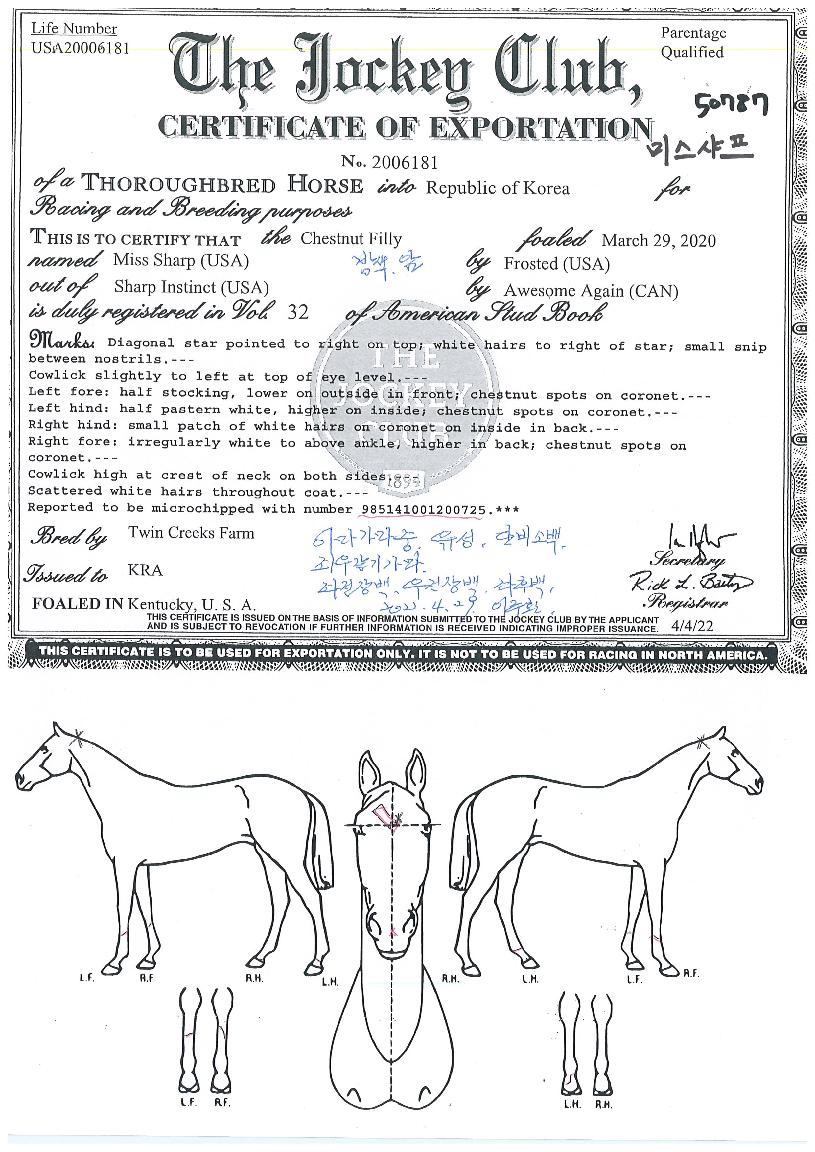 Life Number
USA20006181
Parentage
Qualified
The Jockey Club,
50787
CERTIFICATE OF EXPORTATION
미스샤프
No. 2006181
of a THOROUGHBRED HORSE into Republic of Korea for
Racing and Breeding purposes
THIS IS TO CERTIFY THAT the Chestnut Filly foaled March 29, 2020
named Miss Sharp (USA) by Frosted (USA)
out of Sharp Instinct (USA) by Awesome Again (CAN)
is duly registered in Vol. 32 of American Stud Book
Marks: Diagonal star pointed to right on top; white hairs to right of star; small snip
between nostrils.---
Cowlick slightly to left at top of eye level.---
Left fore: half stocking, lower on outside in front; chestnut spots on coronet.---
Left hind: half pastern white, higher on inside; chestnut spots on coronet.---
Right hind: small patch of white hairs on coronet on inside in back.---
Right fore: irregularly white to above ankle, higher in back; chestnut spots on
coronet.---
Cowlick high at crest of neck on both sides.---
Scattered white hairs throughout coat.---
Reported to be microchipped with number 985141001200725.***
THE
JOCKEY
CLUB
1894
Bred by Twin Creeks Farm
Issued to KRA
FOALED IN Kentucky, U. S. A.
Secretary
Registrar
THIS CERTIFICATE IS ISSUED ON THE BASIS OF INFORMATION SUBMITTED TO THE JOCKEY CLUB BY THE APPLICANT
AND IS SUBJECT TO REVOCATION IF FURTHER INFORMATION IS RECEIVED INDICATING IMPROPER ISSUANCE. 4/4/22
THIS CERTIFICATE IS TO BE USED FOR EXPORTATION ONLY. IT IS NOT TO BE USED FOR RACING IN NORTH AMERICA.
L.F. R.F. R.H. L.H. R.H. L.H. L.F. R.F.
L.F. R.F. L.H. R.H.